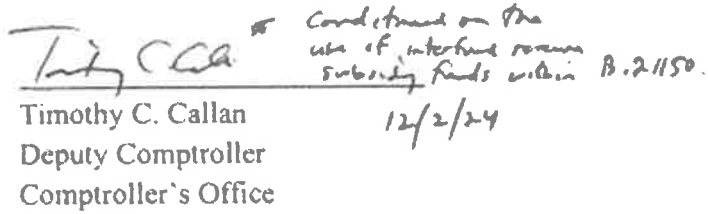 * Conditioned on the
use of interfund revenue
subsidy funds within B.21150.
Timothy C. Callan
12/2/24
Deputy Comptroller
Comptroller's Office